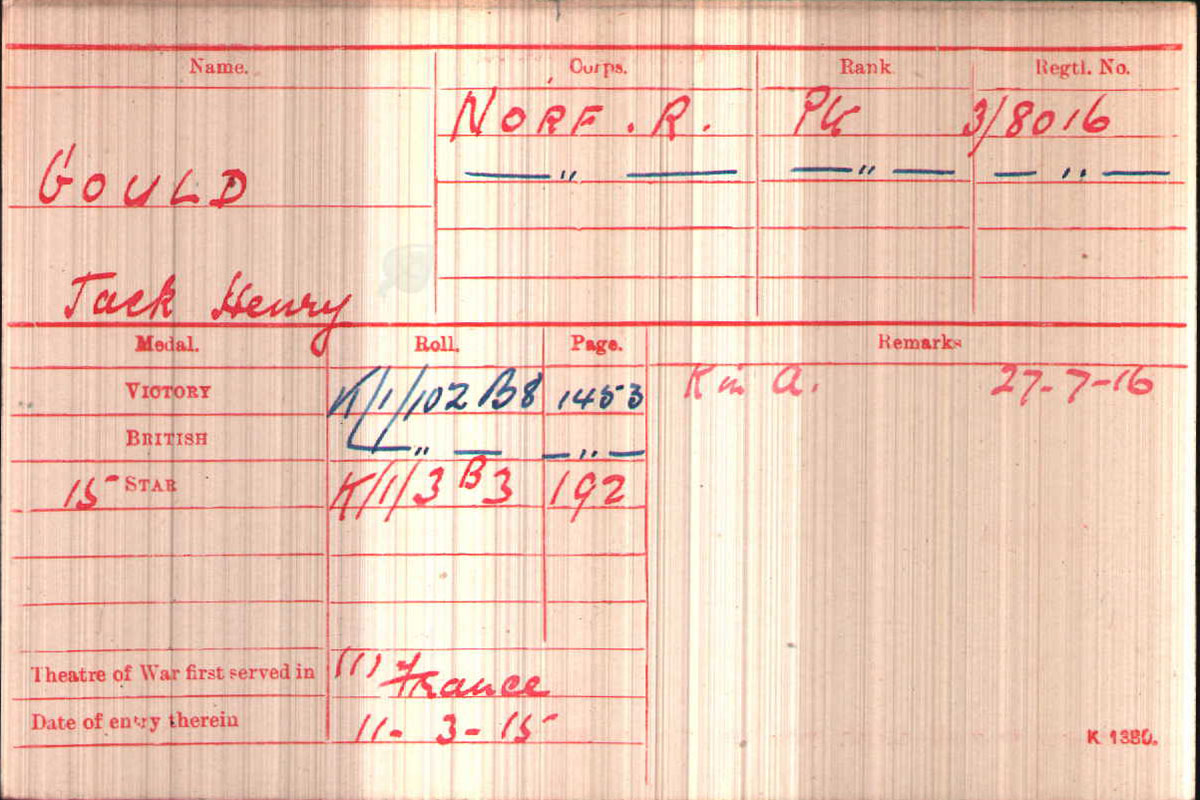 Name. Corps. Rank Regtl. No.
NORF. R. Pte 3/8016
GOULD —— " —— —— " —— — " ——
Jack Henry
Medal. Roll. Page. Remarks
VICTORY K/1/102 B8 1453 K in A. 27-7-16
BRITISH —— " —— — " —
15 STAR K/1/3 B3 192
Theatre of War first served in (1) France
Date of entry therein 11-3-15
K 1380.